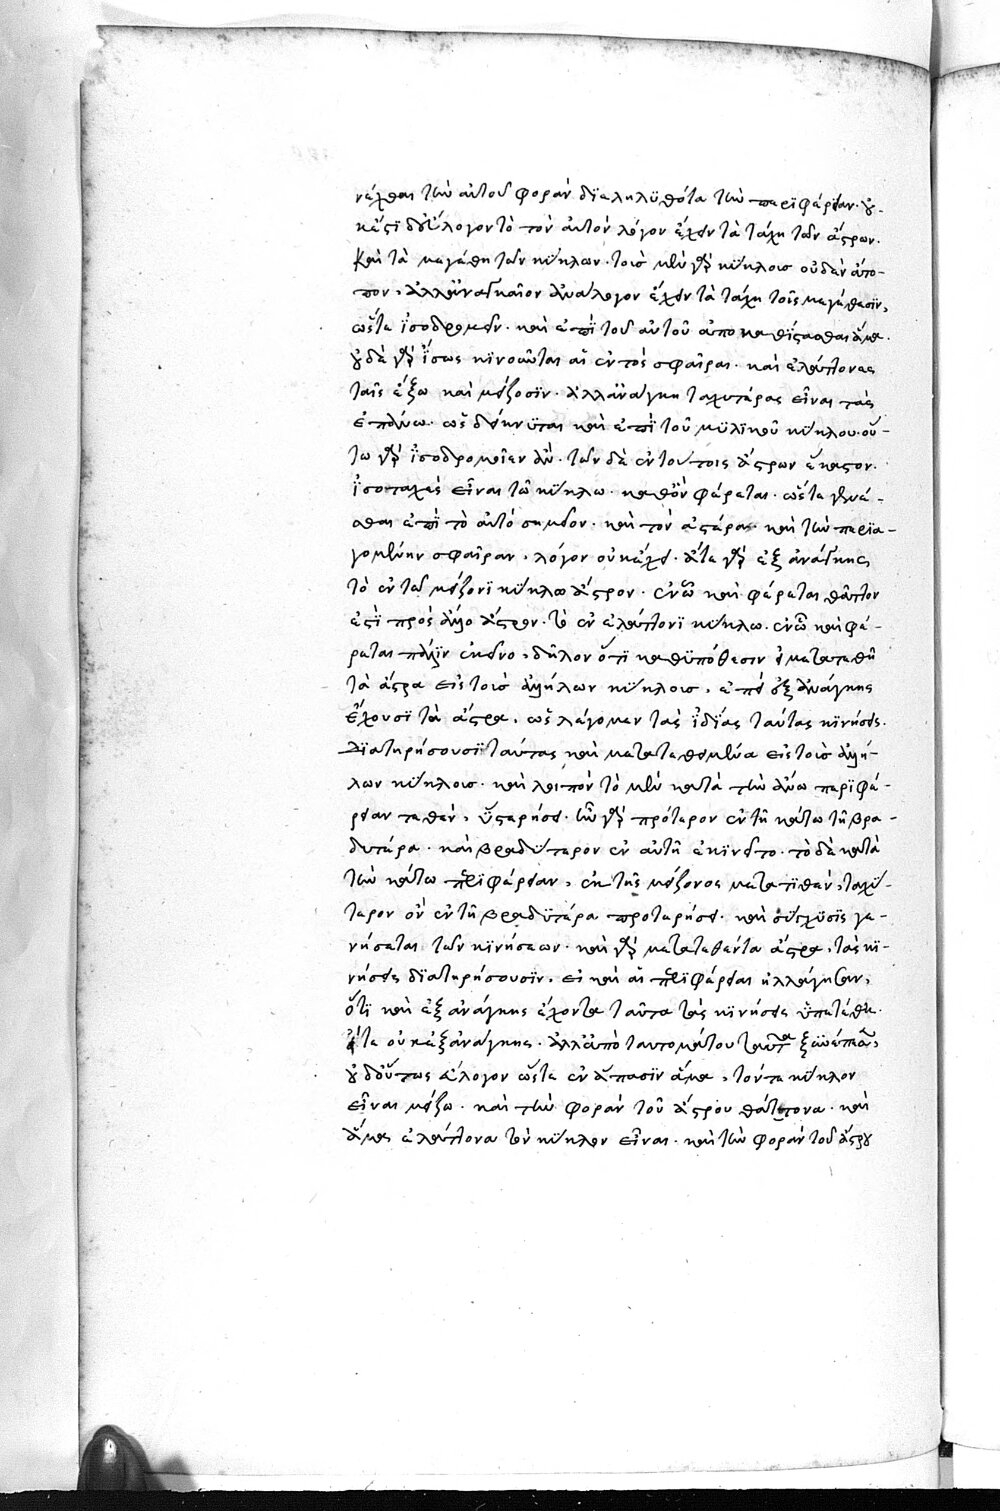 νέχθαι τὴν αὐτοῦ φορὰν διαληλυθότα τὴν περιφέρειαν. οὐ-
κ ἔστι δ' εὔλογον τὸ τὸν αὐτὸν λόγον ἔχειν τὰ τάχη τῶν ἄστρων.
καὶ τὰ μεγέθη τῶν κύκλων. τοὺς μὲν γὰρ κύκλους οὐδὲν ἄτο-
πον, ἀλλ' ἀναγκαῖον ἀνάλογον ἔχειν τὰ τάχη τοῖς μεγέθεσιν,
ὥστε ἰσοδρομεῖν. καὶ ἐπὶ τοῦ αὐτοῦ ἀποκαθίστασθαι ἅμα.
οὐδὲ γὰρ ἴσως κινοῦνται αἱ ἐντὸς σφαῖραι. καὶ ἐλάττονες
ταῖς ἔξω καὶ μείζοσιν. ἀλλ' ἀνάγκη ταχυτέρας εἶναι τὰς
ἐπάνω. ὡς δείκνυται καὶ ἐπὶ τοῦ μυλικοῦ κύκλου. οὕ-
τω γὰρ ἰσοδρομοῖεν ἄν. τῶν δὲ ἐν τούτοις ἄστρων ἕκαστον.
ἰσοταχὲς εἶναι τῷ κύκλω. καθ' ὃν φέρεται. ὥστε γενέ-
σθαι ἐπὶ τὸ αὐτὸ σημεῖον. καὶ τὸν ἀστέρα. καὶ τὴν περια-
γομένην σφαῖραν, λόγον οὐκ ἔχει. εἴτε γὰρ ἐξ ἀνάγκης
τὸ ἐν τῷ μείζονι κύκλω ἄστρον. ἐν ᾧ καὶ φέρεται θᾶττον
ἐστὶ πρὸς ἄλλο ἄστρον. τὸ ἐν ἐλάττονι κύκλω. ἐν ᾧ καὶ φέ-
ρεται πάλιν ἐκεῖνο, δῆλον ὅτι καθ' ὑπόθεσιν εἰ μετατεθῆ
τὰ ἄστρα εἰς τοὺς ἀλλήλων κύκλους, ἐπεὶ ἐξ ἀνάγκης
ἔχουσι τὰ ἄστρα, ὡς λέγομεν τὰς ἰδίας ταύτας κινήσεις.
διατηρήσουσι ταύτας καὶ μετατεθειμένα εἰς τοὺς ἀλλή-
λων κύκλους. καὶ λοιπὸν τὸ μὲν κατὰ τὴν ἄνω περιφέ-
ρειαν τεθὲν, ὑστερήσει. ἦν γὰρ πρότερον ἐν τῆ κάτω τῆ βρα-
δυτέρα. καὶ βραδύτερον ἐν αὐτῆ ἐκινεῖτο. τὸ δὲ κατὰ
τὴν κάτω περιφέρειαν, ἐκ τῆς μείζονος μετατιθὲν, ταχύ-
τερον ὂν ἐν τῆ βραδυτέρα προτερήσει. καὶ σύγχυσις γε-
νήσεται τῶν κινήσεων. καὶ γὰρ μετατεθέντα ἄστρα, τὰς κι-
νήσεις διατηρήσουσιν, εἰ καὶ αἱ περιφέρειαι ἠλλάγησαν,
ὅτι καὶ ἐξ ἀνάγκης ἔχοντα ταῦτα τὰς κινήσεις ὑπετέθη.
εἴτε οὐκ ἐξ ἀνάγκης. ἀλλ' ἀπὸ ταυτομάτου ταῦτα
οὐδ' οὕτως εὔλογον ὥστε ἐν ἅπασιν ἅμα, τόν τε κύκλον
εἶναι μείζω. καὶ τὴν φορὰν τοῦ ἄστρου θάττονα. καὶ
ἅμα ἐλάττονα τὸν κύκλον εἶναι. καὶ τὴν φορὰν τοῦ ἄστρου